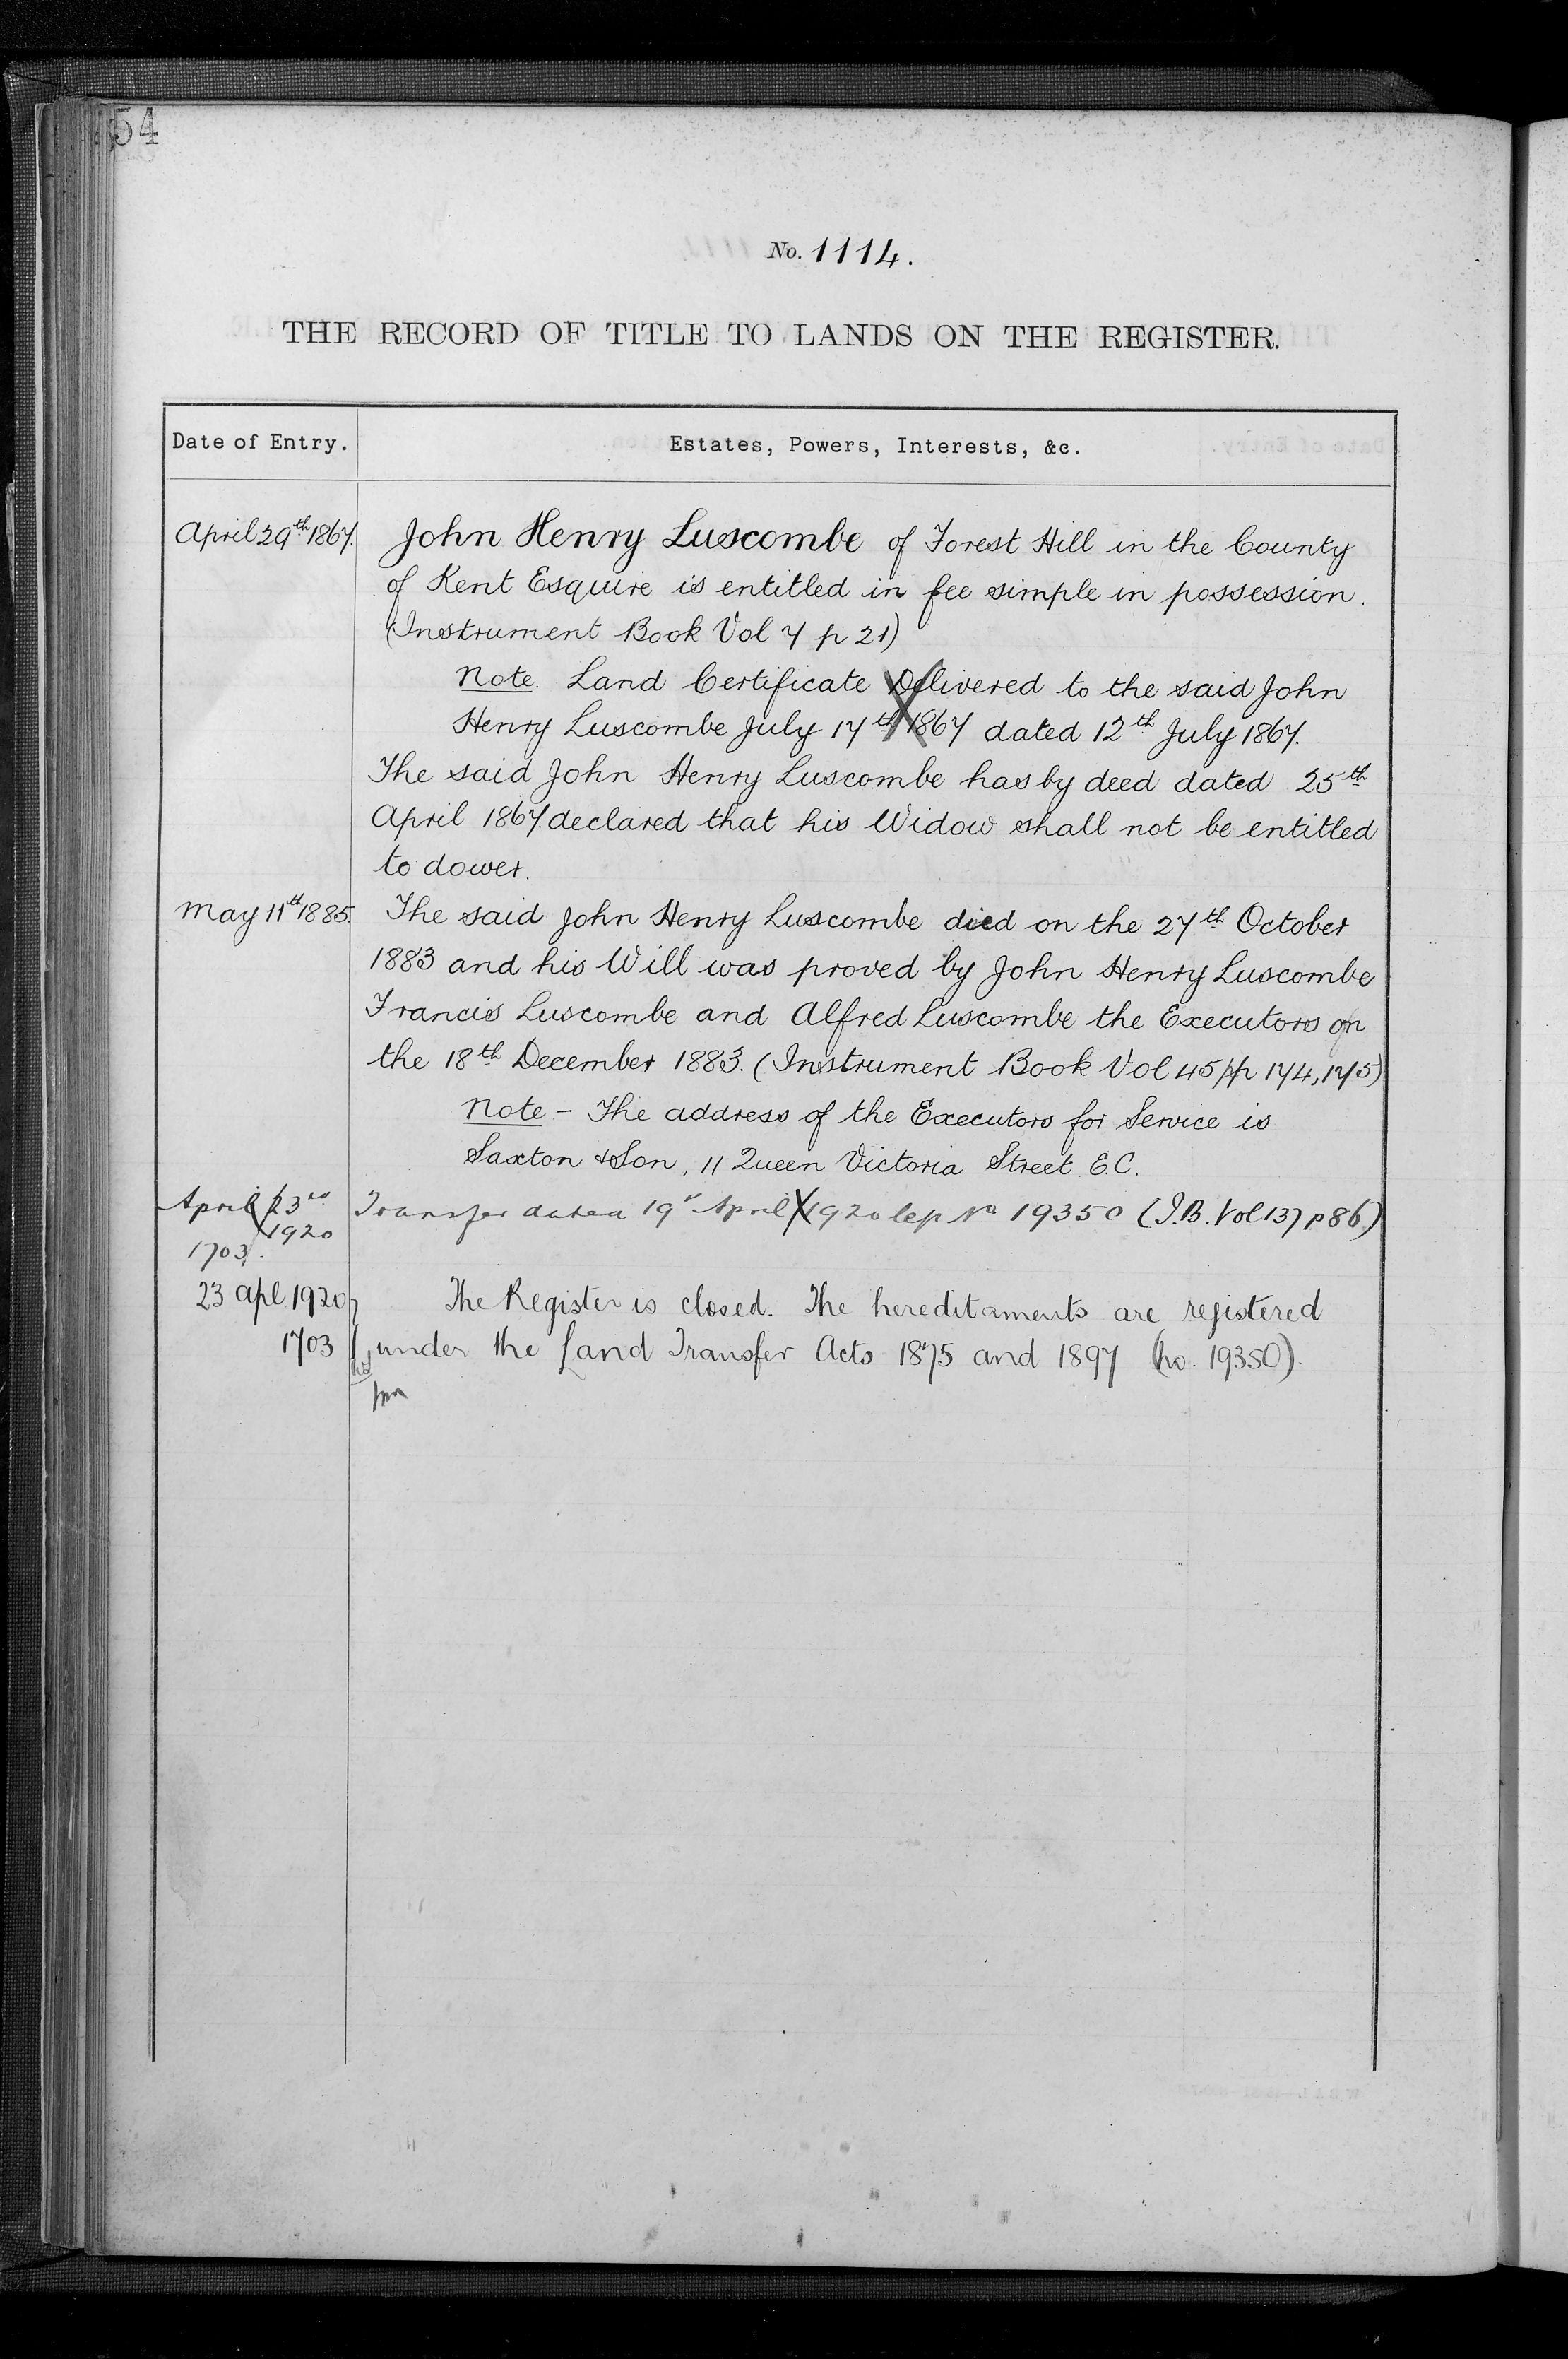 54
No. 1114.
THE RECORD OF TITLE TO LANDS ON THE REGISTER.
Date of Entry.
Estates, Powers, Interests, &c.
April 29th 1867.
John Henry Luscombe of Forest Hill in the County
of Kent Esquire is entitled in fee simple in possession.
(Instrument Book Vol 7 p 21)
Note. Land Certificate Delivered to the said John
Henry Luscombe July 17th 1867 dated 12th July 1867.
The said John Henry Luscombe has by deed dated 25th
April 1867. declared that his Widow shall not be entitled
to dower.
May 11th 1885
The said John Henry Luscombe died on the 27th October
1883 and his Will was proved by John Henry Luscombe
Francis Luscombe and Alfred Luscombe the Executors on
the 18th December 1883. (Instrument Book Vol 45 pp 174, 175)
Note - The address of the Executors for Service is
Saxton & Son, 11 Queen Victoria Street. E.C.
April 23rd
1920
1703.
Transfer dated 19 April 1920 No 19350 (I.B. Vol 137 p 86)
23 Apl 1920
The Register is closed. The hereditaments are registered
1703
under the Land Transfer Acts 1875 and 1897 (No. 19350).